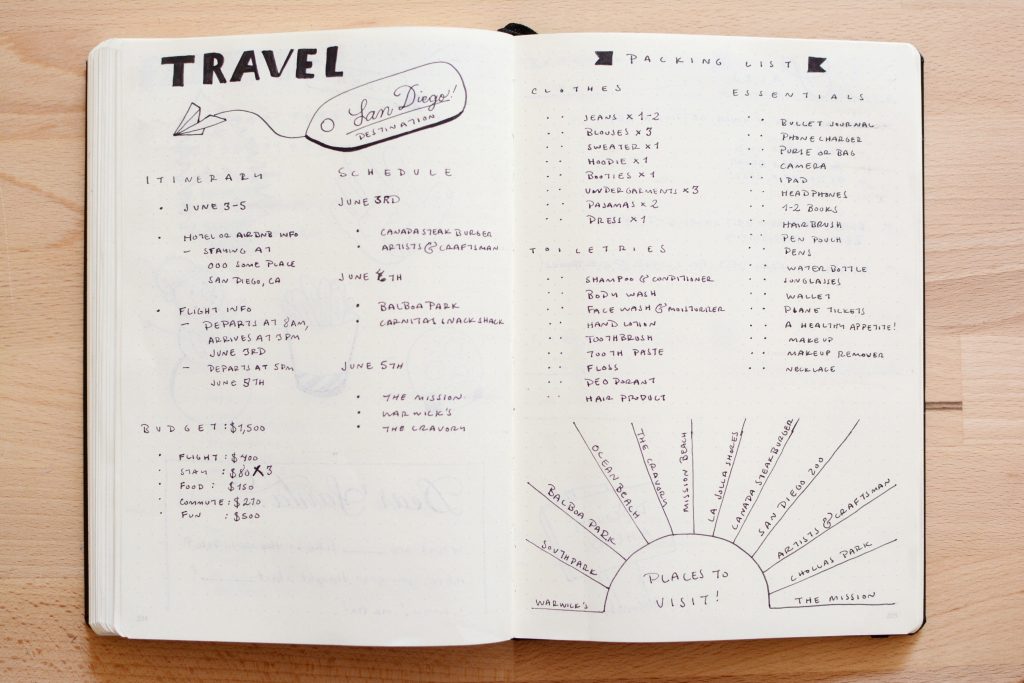 TRAVEL
San Diego!
DESTINATION
ITINERARY
• JUNE 3-5
• HOTEL OR AIRBNB INFO
– STAYING AT
000 SOME PLACE
SAN DIEGO, CA
• FLIGHT INFO
– DEPARTS AT 8AM,
ARRIVES AT 3PM
JUNE 3RD
– DEPARTS AT 5PM
JUNE 5TH
SCHEDULE
JUNE 3RD
• CANADA STEAK BURGER
• ARTISTS & CRAFTSMAN
JUNE 4TH
• BALBOA PARK
• CARNITAS SNACK SHACK
JUNE 5TH
• THE MISSION
• WARWICK'S
• THE CRAVORY
BUDGET: $1,500
• FLIGHT: $400
• STAY: $80 X 3
• FOOD: $150
• COMMUTE: $270
• FUN: $500
PACKING LIST
CLOTHES
•• JEANS × 1-2
•• BLOUSES × 3
•• SWEATER × 1
•• HOODIE × 1
•• BOOTIES × 1
•• UNDERGARMENTS × 3
•• PAJAMAS × 2
•• DRESS × 1
TOILETRIES
•• SHAMPOO & CONDITIONER
•• BODY WASH
•• FACE WASH & MOISTURRER
•• HAND LOTION
•• TOOTHBRUSH
•• TOOTH PASTE
•• FLOSS
•• DEODORANT
•• HAIR PRODUCT
ESSENTIALS
•• BULLET JOURNAL
•• PHONE CHARGER
•• PURSE OR BAG
•• CAMERA
•• IPAD
•• HEADPHONES
•• 1-2 BOOKS
•• HAIRBRUSH
•• PEN POUCH
•• PENS
•• WATER BOTTLE
•• SUNGLASSES
•• WALLET
•• PLANE TICKETS
•• A HEALTHY APPETITE!
•• MAKEUP
•• MAKEUP REMOVER
•• NECKLACE
WARWICK'S
SOUTHPARK
BALBOA PARK
OCEAN BEACH
THE CRAVORY
MISSION BEACH
LA JOLLA SHORES
CANADA STEAK BURGER
SAN DIEGO ZOO
ARTISTS & CRAFTSMAN
CHOLLAS PARK
THE MISSION
PLACES TO
VISIT!